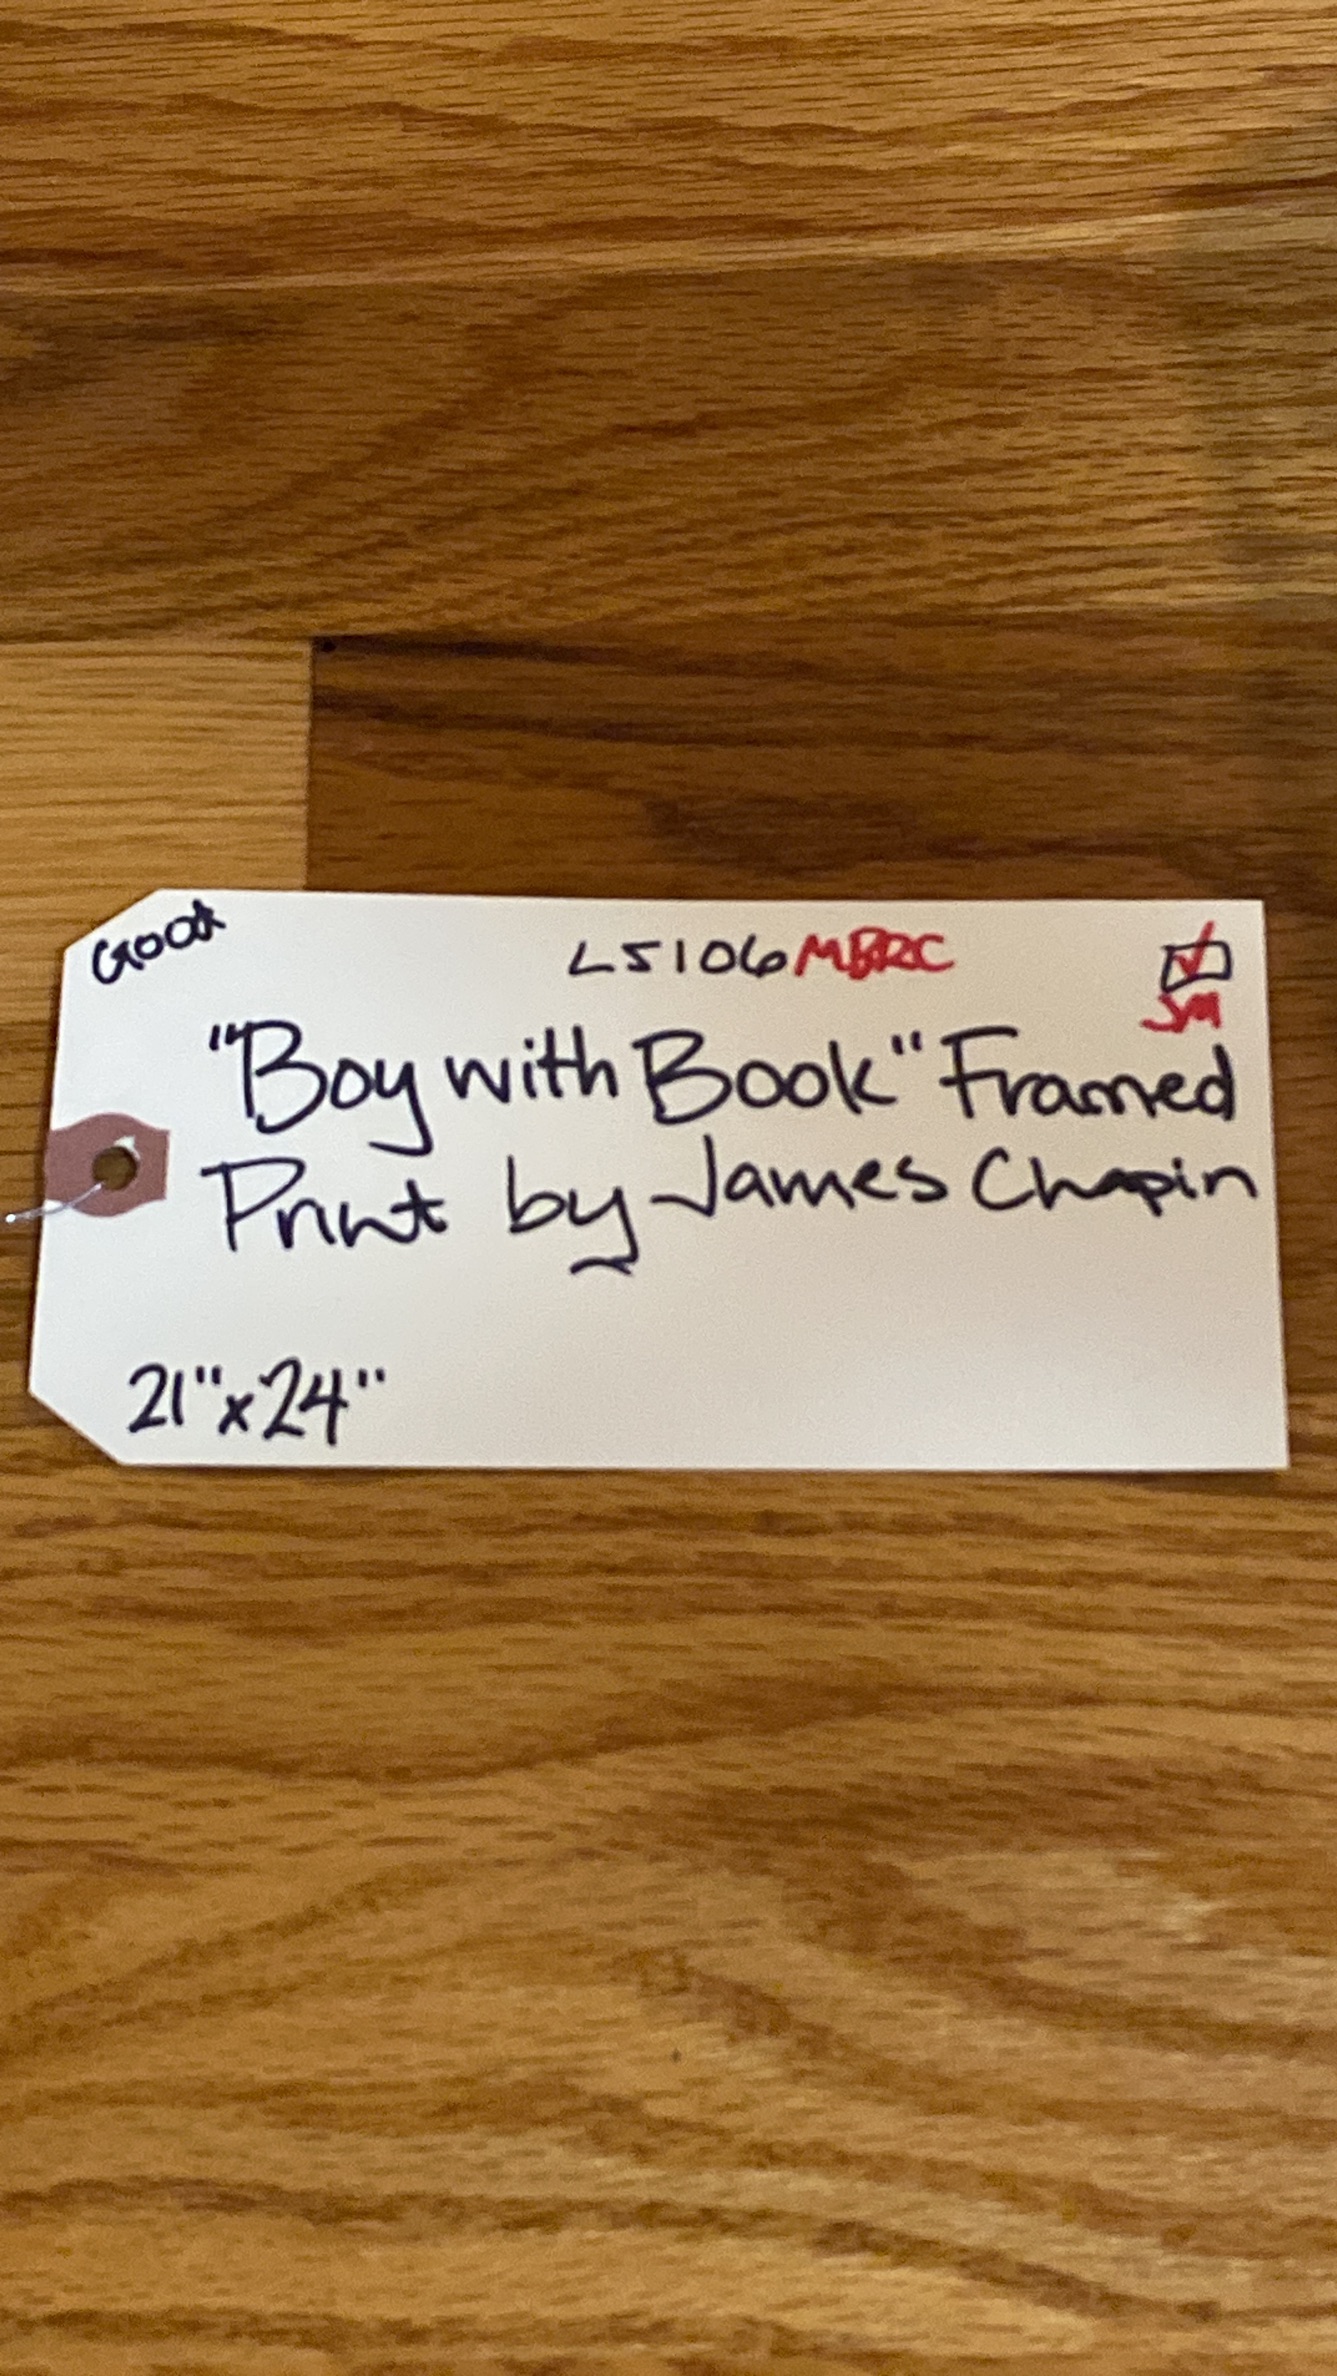 Good
L5106MBRC
SM
"Boy with Book" Framed
Print by James Chapin
21"x24"